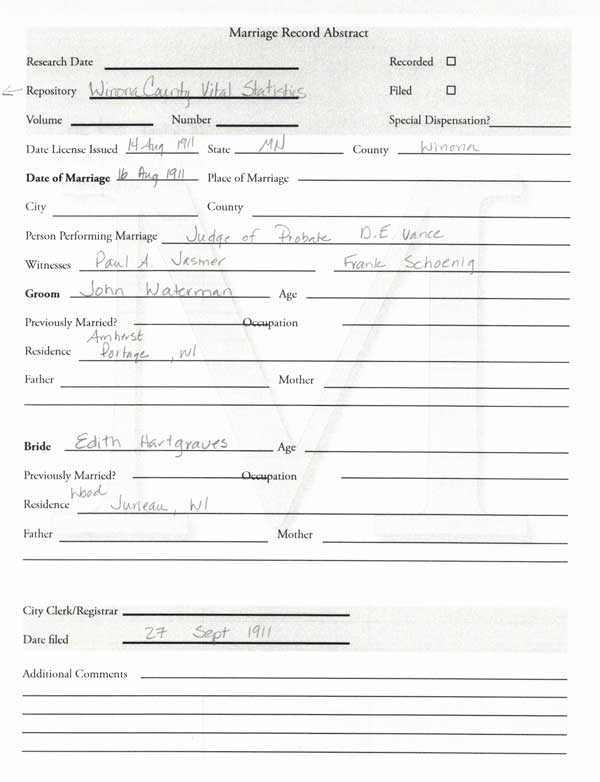 Marriage Record Abstract
Research Date Recorded ☐
Repository Winona County Vital Statistics Filed ☐
Volume Number Special Dispensation?
Date License Issued 14 Aug 1911 State MN County Winona
Date of Marriage 16 Aug 1911 Place of Marriage
City County
Person Performing Marriage Judge of Probate D.E. Vance
Witnesses Paul A. Jasmer Frank Schoenig
Groom John Waterman Age
Previously Married? Occupation
Amherst
Residence Portage, WI
Father Mother
Bride Edith Hartgraves Age
Previously Married? Occupation
Wood
Residence Juneau, WI
Father Mother
City Clerk/Registrar
Date filed 27 Sept 1911
Additional Comments